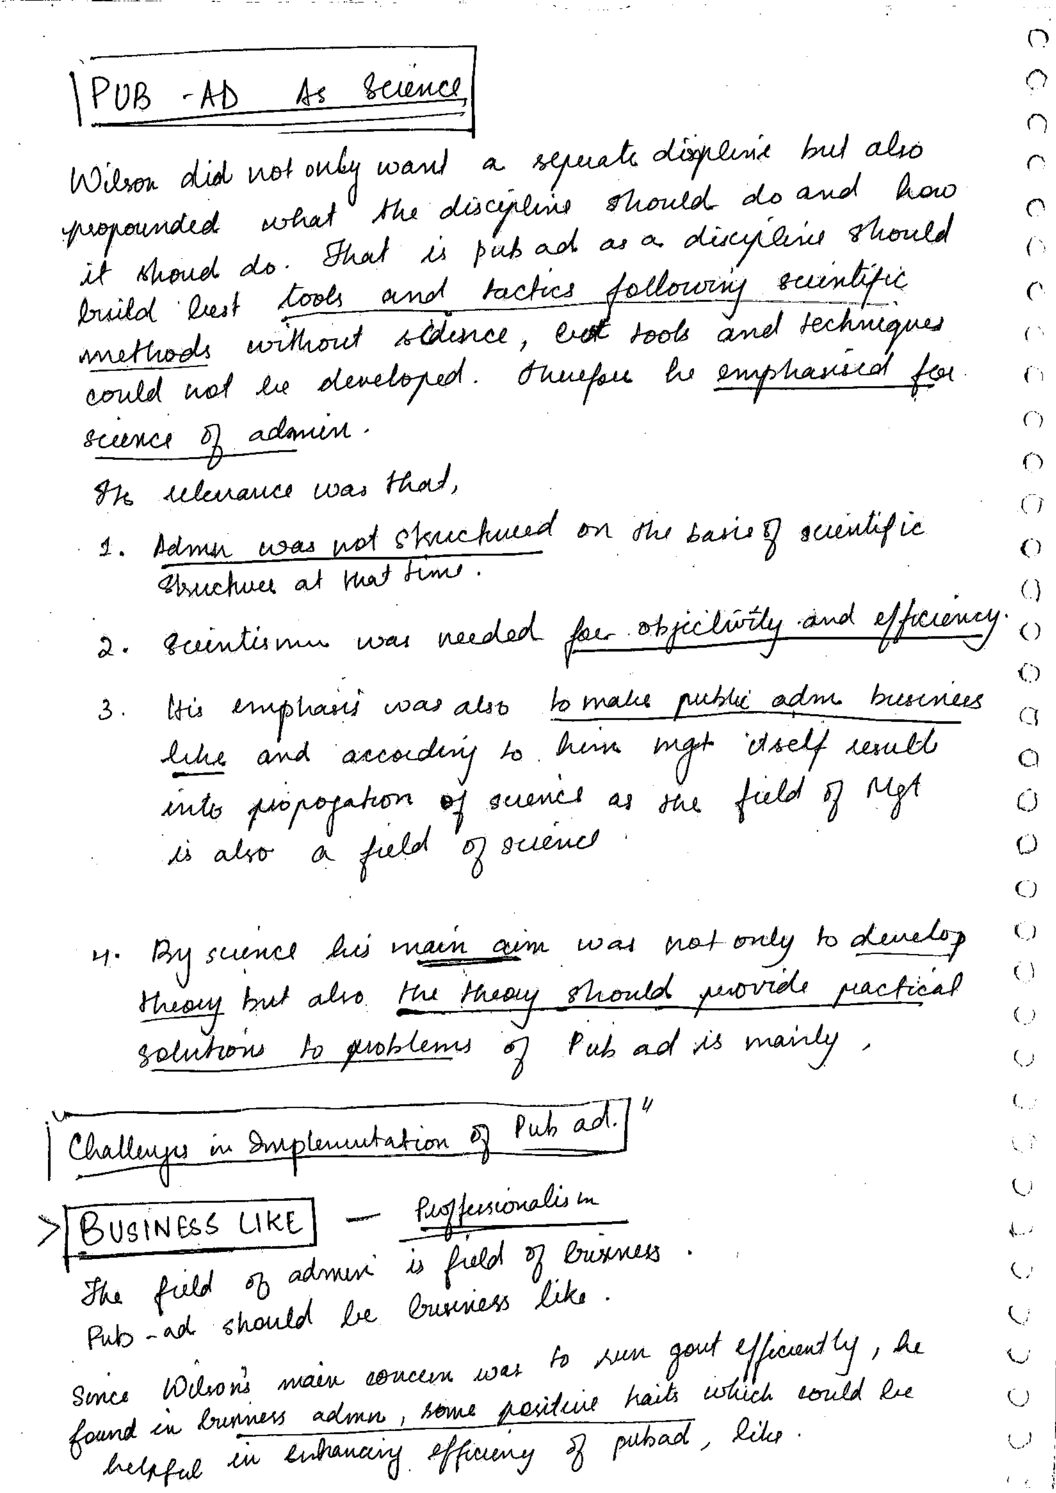 PUB -AD As Science
Wilson did not only want a seperate displine but also
propounded what the discipline should do and how
it shoud do. That is pub ad as a discipline should
build best tools and tactics following scientific
methods without science, tools and techniques
could not be developed. Therefore he emphasised for
science of admin.
Its relevance was that,
1. Admn was not structured on the basis of scientific
structures at that time.
2. Scientismn was needed for objectivity and efficiency.
3. His emphasis was also to make public adm business
like and according to him mgt itself result
into propogation of science as the field of Mgt
is also a field of science.
4. By science his main aim was not only to develop
theory but also the theory should provide practical
solutions to problems of Pub ad is mainly,
"Challenges in Implementation of Pub ad."
> BUSINESS LIKE — Proffersionalism
The field of admin is field of business.
Pub-ad should be business like.
Since Wilson's main concern was to run govt efficiently, he
found in business admn, some positive traits which could be
helpful in enhancing efficiency of pubad, like.